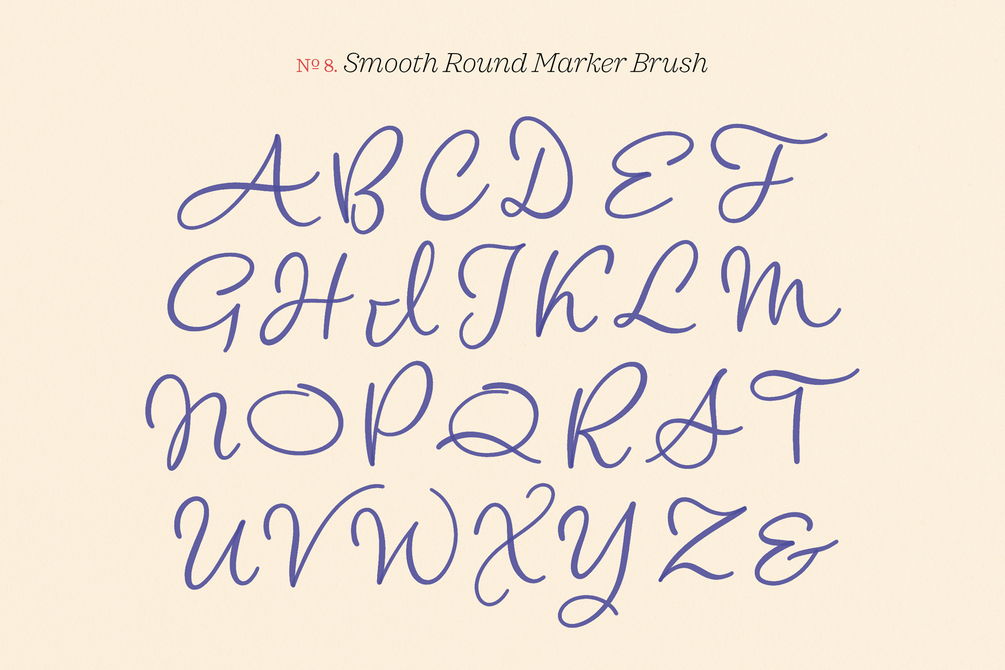 Nº 8. Smooth Round Marker Brush
A B C D E F
G H I J K L M
N O P Q R S T
U V W X Y Z &